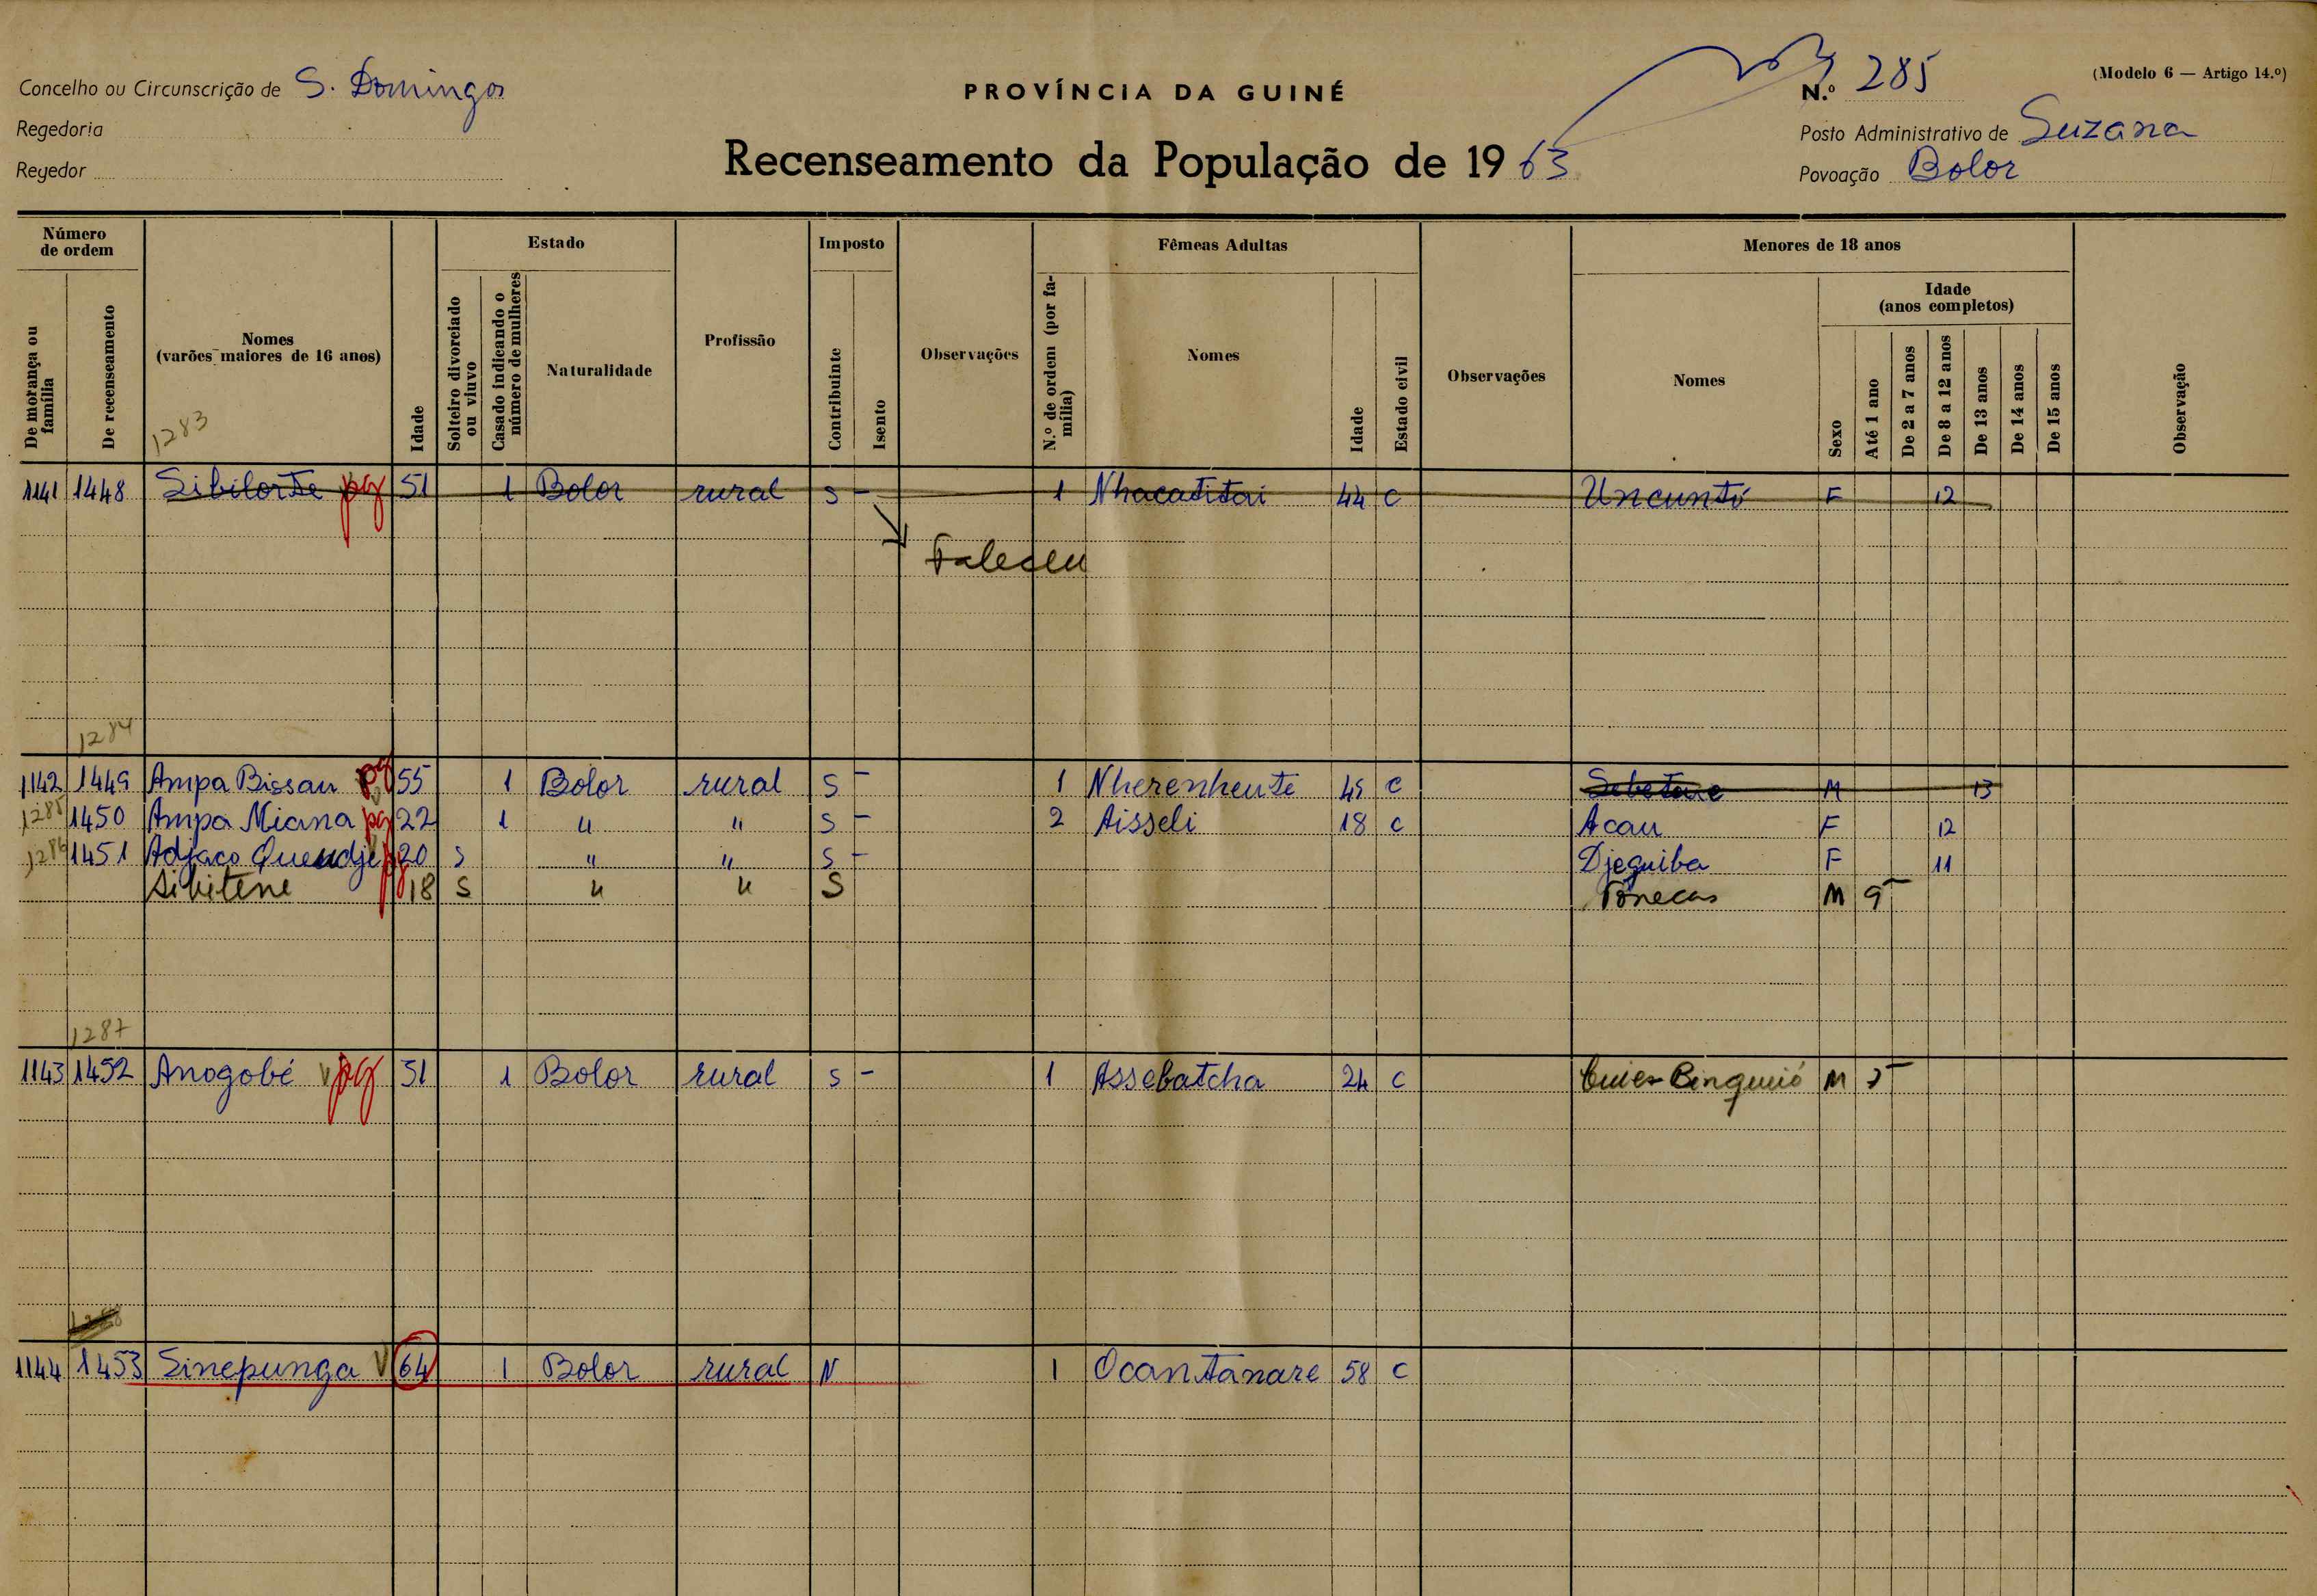 Concelho ou Circunscrição de S. Domingos
Regedoria
Regedor
PROVÍNCIA DA GUINÉ
Recenseamento da População de 1963
(Modelo 6 — Artigo 14.º)
N.º 285
Posto Administrativo de Suzana
Povoação Bolor
Número de ordem
De morança ou família
De recenseamento
Nomes (varões maiores de 16 anos)
Idade
Estado
Solteiro divorciado ou viuvo
Casado indicando o número de mulheres
Naturalidade
Profissão
Imposto
Contribuinte
Isento
Observações
Fêmeas Adultas
N.º de ordem (por família)
Nomes
Idade
Estado civil
Observações
Menores de 18 anos
Nomes
Sexo
Idade (anos completos)
Até 1 ano
De 2 a 7 anos
De 8 a 12 anos
De 13 anos
De 14 anos
De 15 anos
Observação
1283
1141 1448 Sibilorte pg 51 1 Bolor rural S - 1 Nhacatitai 44 C Uncunto F 12
Faleceu
1284
1142 1449 Ampa Bissau pg 55 1 Bolor rural S - 1 Nherenheute 45 C M 13
1285 1450 Ampa Miana pg 22 1 " " S - 2 Aisseli 18 C Acau F 12
1286 1451 Adjaco 20 S " " S - Djeguiba F 11
Sibitene 18 S " " S M
1287
1143 1452 Anogobé V pg 31 1 Bolor rural S - 1 Assebatcha 24 C M
1144 1453 Sinepunga V 64 1 Bolor rural N 1 Ocantanare 58 C